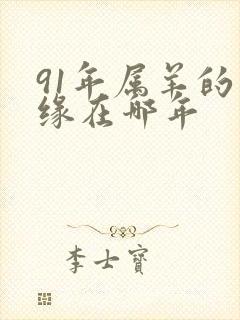 91年属羊的
缘在哪年
李士宝